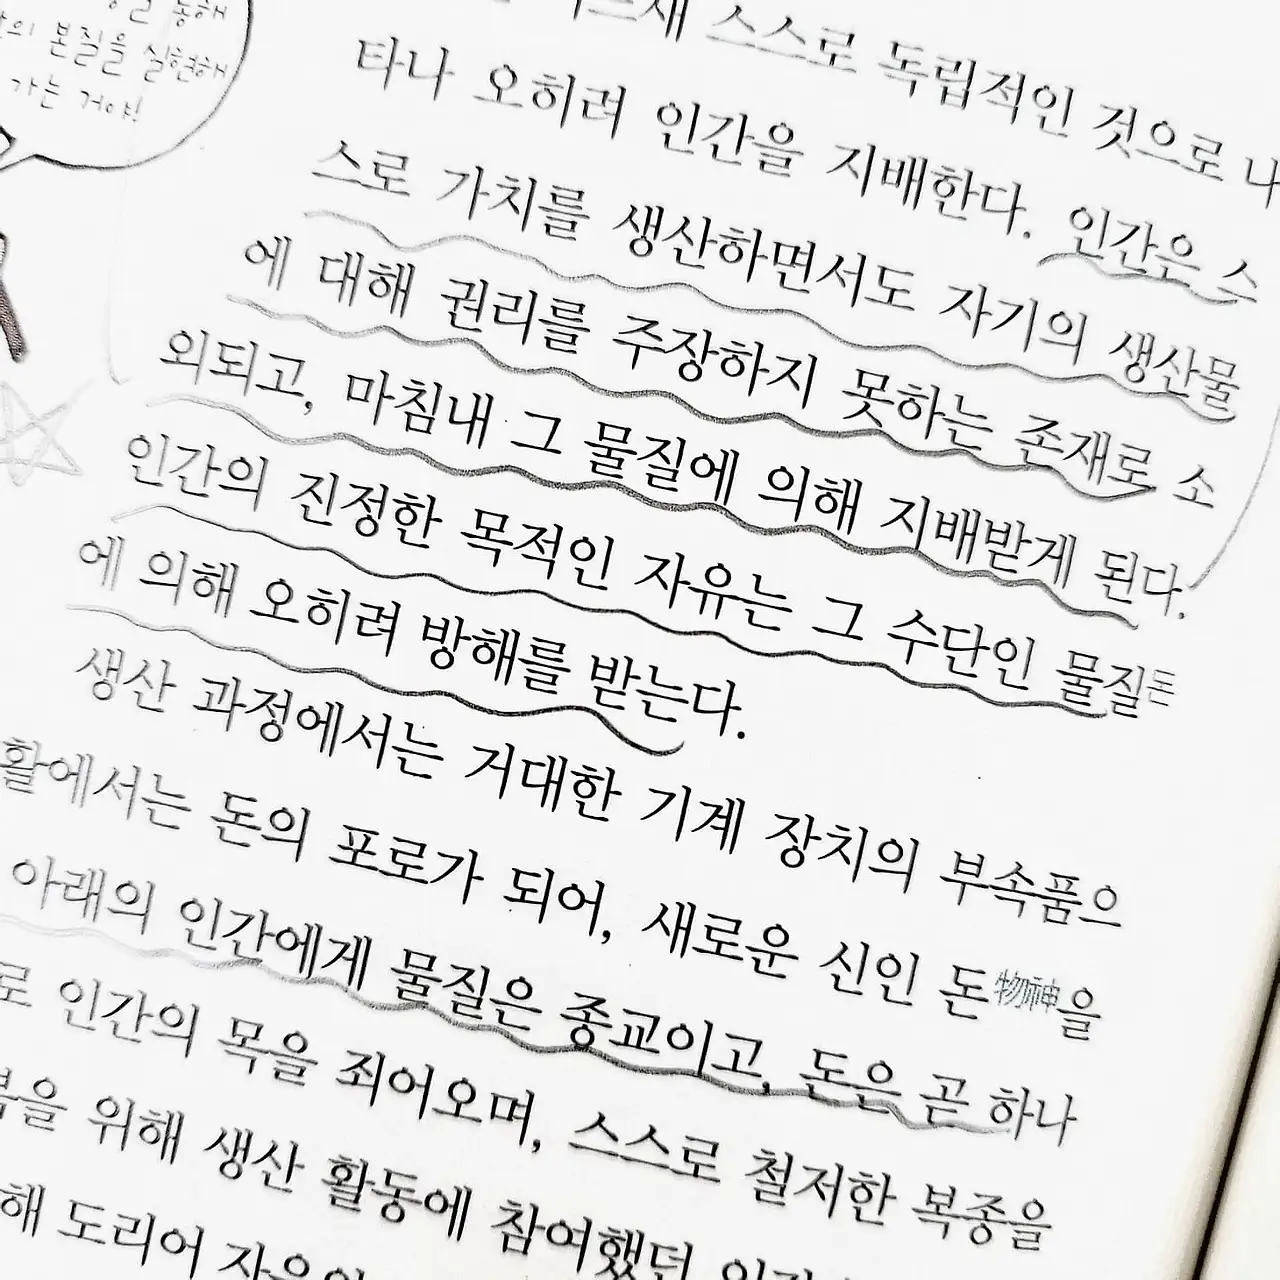 통해
본질을 실현해
가는 거야!
스스로 독립적인 것으로 나
타나 오히려 인간을 지배한다. 인간은 스
스로 가치를 생산하면서도 자기의 생산물
에 대해 권리를 주장하지 못하는 존재로 소
외되고, 마침내 그 물질에 의해 지배받게 된다.
인간의 진정한 목적인 자유는 그 수단인 물질돈
에 의해 오히려 방해를 받는다.
생산 과정에서는 거대한 기계 장치의 부속품으
활에서는 돈의 포로가 되어, 새로운 신인 돈物神을
아래의 인간에게 물질은 종교이고, 돈은 곧 하나
로 인간의 목을 죄어오며, 스스로 철저한 복종을
위해 생산 활동에 참여했던
해 도리어